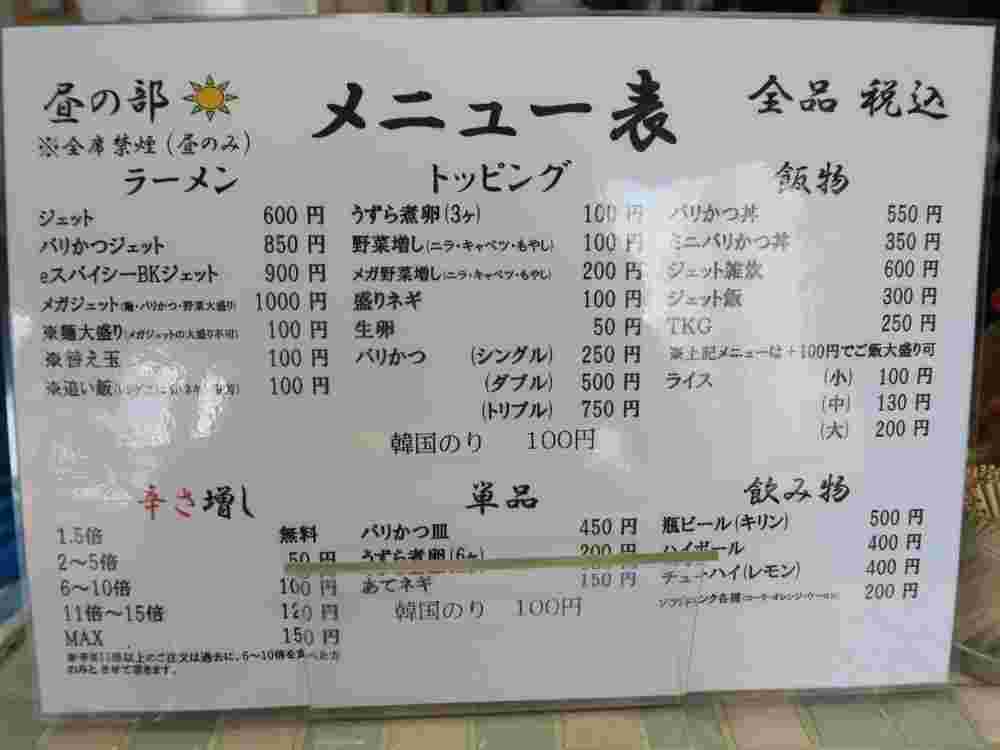 昼の部
メニュー表
全品 税込
※全席禁煙(昼のみ)
ラーメン
ジェット 600円
バリかつジェット 850円
eスパイシーBKジェット 900円
メガジェット(麺・バリかつ・野菜大盛り) 1000円
※麺大盛り(メガジェットの大盛り不可) 100円
※替え玉 100円
※追い飯 100円
トッピング
うずら煮卵(3ヶ) 100円
野菜増し(ニラ・キャベツ・もやし) 100円
メガ野菜増し(ニラ・キャベツ・もやし) 200円
盛りネギ 100円
生卵 50円
バリかつ (シングル) 250円
(ダブル) 500円
(トリプル) 750円
韓国のり 100円
飯物
バリかつ丼 550円
ミニバリかつ丼 350円
ジェット雑炊 600円
ジェット飯 300円
TKG 250円
※上記メニューは+100円でご飯大盛り可
ライス (小) 100円
(中) 130円
(大) 200円
辛さ増し
1.5倍 無料
2〜5倍 50円
6〜10倍 100円
11倍〜15倍 120円
MAX 150円
以上のご注文は過去に、6〜10倍を食べた方
のみとさせて頂きます。
単品
バリかつ皿 450円
うずら煮卵(6ヶ) 200円
あてネギ 150円
韓国のり 100円
飲み物
瓶ビール(キリン) 500円
ハイボール 400円
チューハイ(レモン) 400円
ソフトドリンク各種 200円